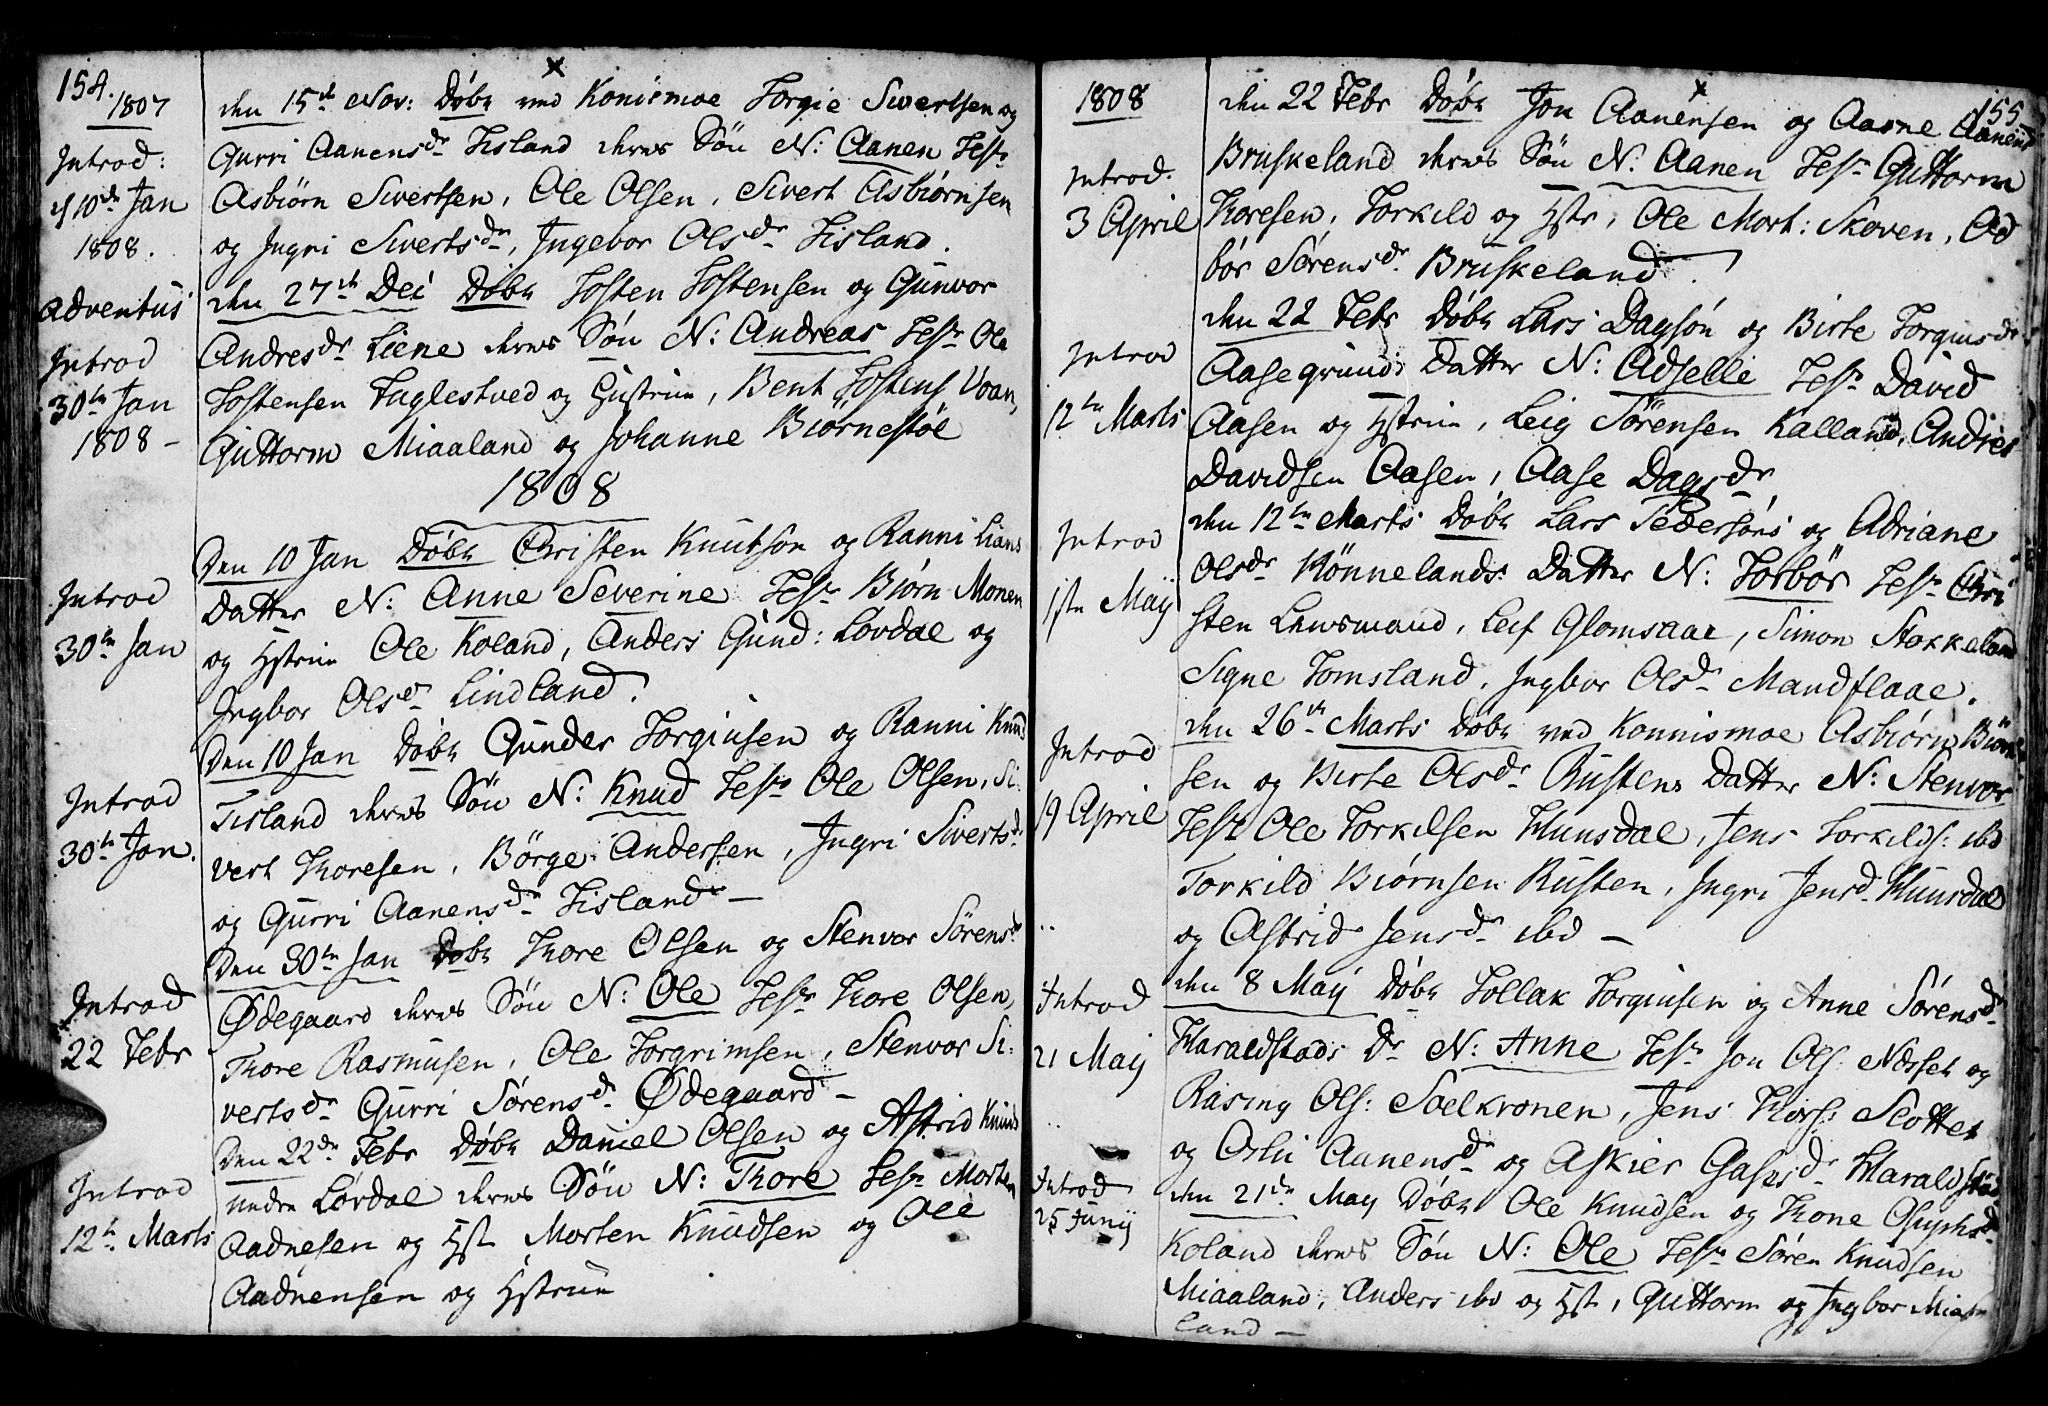 154.
1807
Introd:
d 10de Jan
1808.
Adventus
Introd
30te Jan
1808 -
Introd
30te Jan
Introd
30te Jan.
Introd
22 Febr
Introd
12te Marts
den 15de Nov: Döbt ved Konismoe Torgie Sivertsen og
Gurri Aanensdr Tisland deres Sön N: Aanen Testr
Asbiörn Sivertsen, Ole Olsen, Sivert Asbiörnsen
og Ingri Sivertsdr, Ingebor Olsdr Tisland.
den 27de Dec Döbt Tosten Tostensen og Gunvor
Andresdr Liene deres Sön N: Andreas Testr Ole
Tostensen Fuglestved og Hustrue, Bent Tostens Voan,
Guttorm Miaaland og Johanne Biörnestöl
1808
Den 10 Jan Döbt Christen Knutsön og Ranni Lians
Datter N: Anne Severine Testr Biörn Monen
og Hstrue Ole Koland, Anders Gund: Lövdal og
Ingbor Olsdr Lindland.
Den 10 Jan Döbt Gunder Torgiusen og Ranni Knud
Tisland deres Sön N: Knud Testr Ole Olsen, Si:
vert Thoresen, Börge Andersen, Ingri Sivertsd.
og Gurri Aanensdr Tisland -
Den 30te Jan Döbt Thore Olsen og Stenvor Sörensdr
Ødegaard deres Sön N: Ole Testr Thore Olsen,
Thore Rasmusen, Ole Torgrimsen, Stenvor Si:
vertsdr Gurri Sörensd. Ødegaard -
Den 22de Febr Döbt Daniel Olsen og Astrid Knuds
nedre Lövdal deres Sön N: Thore Testr Morten
Aadnesen og Hst Morten Knudsen og Ole
Aadnensen og Hstrue
155
1808
Introd.
3 April
Introd
12te Marts
Introd
1ste Maÿ
Introd
19 April
Introd
21 Maÿ
Introd
25 Junÿ
den 22 Febr Döbt Jon Aanensen og Aasne Aanensd
Bruskeland deres Sön N. Aanen Testr Guttorm
Thoresen, Torkild og Hstr, Ole Mort: Skoven, Od
bör Sörensdr. Bruskeland.
den 22 Febr Döbt Lars Dagsön og Birte Torgiusdr
Aasegrund: Datter N: Adselle Testr David
Aasen og Hstrue, Leig Sörensen Kalland, Andres
Davidsen Aasen, Aase Dagsdr
den 12te Marts Döbt Lars Pedersöns og Adriane
Olsdr Hönnelands: Datter N: Torbör Testr Chri
sten Lensmand, Leif Glomsaae, Simon Stokkeland
Signe Tomsland, Ingbor Olsdr Mandflaae.
den 26de Marts Döbt ved Konnismoe Asbiörn Biörn
sen og Birte Olsdr Rustens Datter N: Stenvor
Testr Ole Torkilsen Hunsdal, Jens Torkilds: ibd
Torkild Biörnsen Rusten, Ingri Jensd. Hunsdal
og Astrid Jensdr ibd -
den 8 Maÿ Döbt Tollak Torgiusen og Anne Sörensdr
Haraldstads Dr N: Anne Testr Jon Ols: Nesset og
Rasmg Ols: Soelkronen, Jens Thors: Scottet
og Osli Aanensdr og Askier Gasesdr Haraldstad
den 21de Maÿ Döbt Ole Knudsen og Thone
Koland deres Sön N: Ole Testr Sören Knudsen
Miaaland, Anders ibd og Hst, Guttorm og Ingbor Miaa
land -